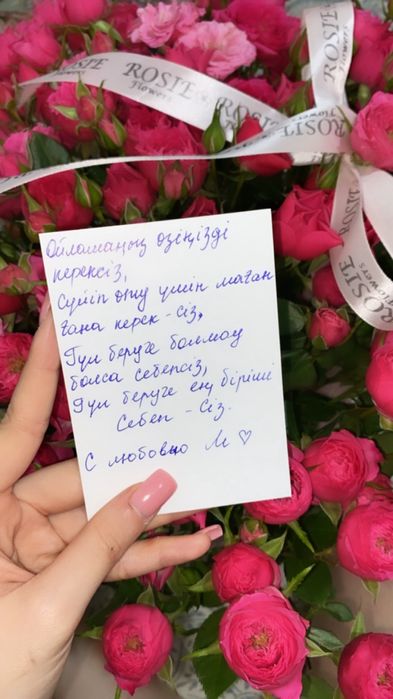 ROSIE
flowers
ROSIE
flowers
ROSIE
flowers
Ойламаңыз өзіңізді
керексіз,
Сүйіп өту үшін маған
ғана керек - Сіз,
Гүл беруге болмау
болса себепсіз,
Гүл беруге ең бірінші
Себеп - Сіз.
С любовью М ♡